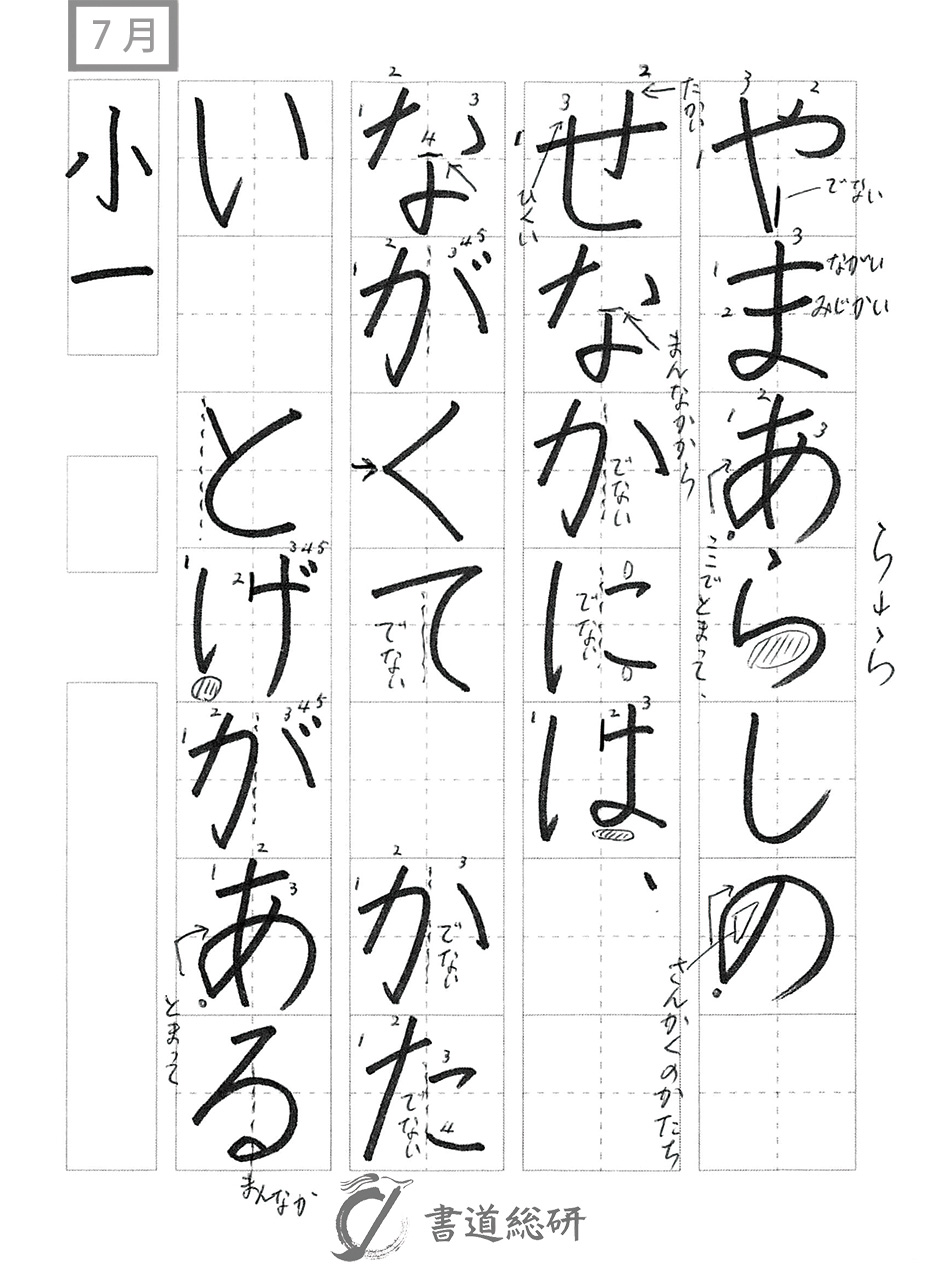 7月
やまあらしの
せなかには、
ながくて かた
い とげがある
小一
たかい
ひくい
でない
ながい
みじかい
まんなかから
でない
でない
ここでとまって、
ら→ヽら
でない
でない
さんかくのかたち
でない
とまって
まんなか
書道総研